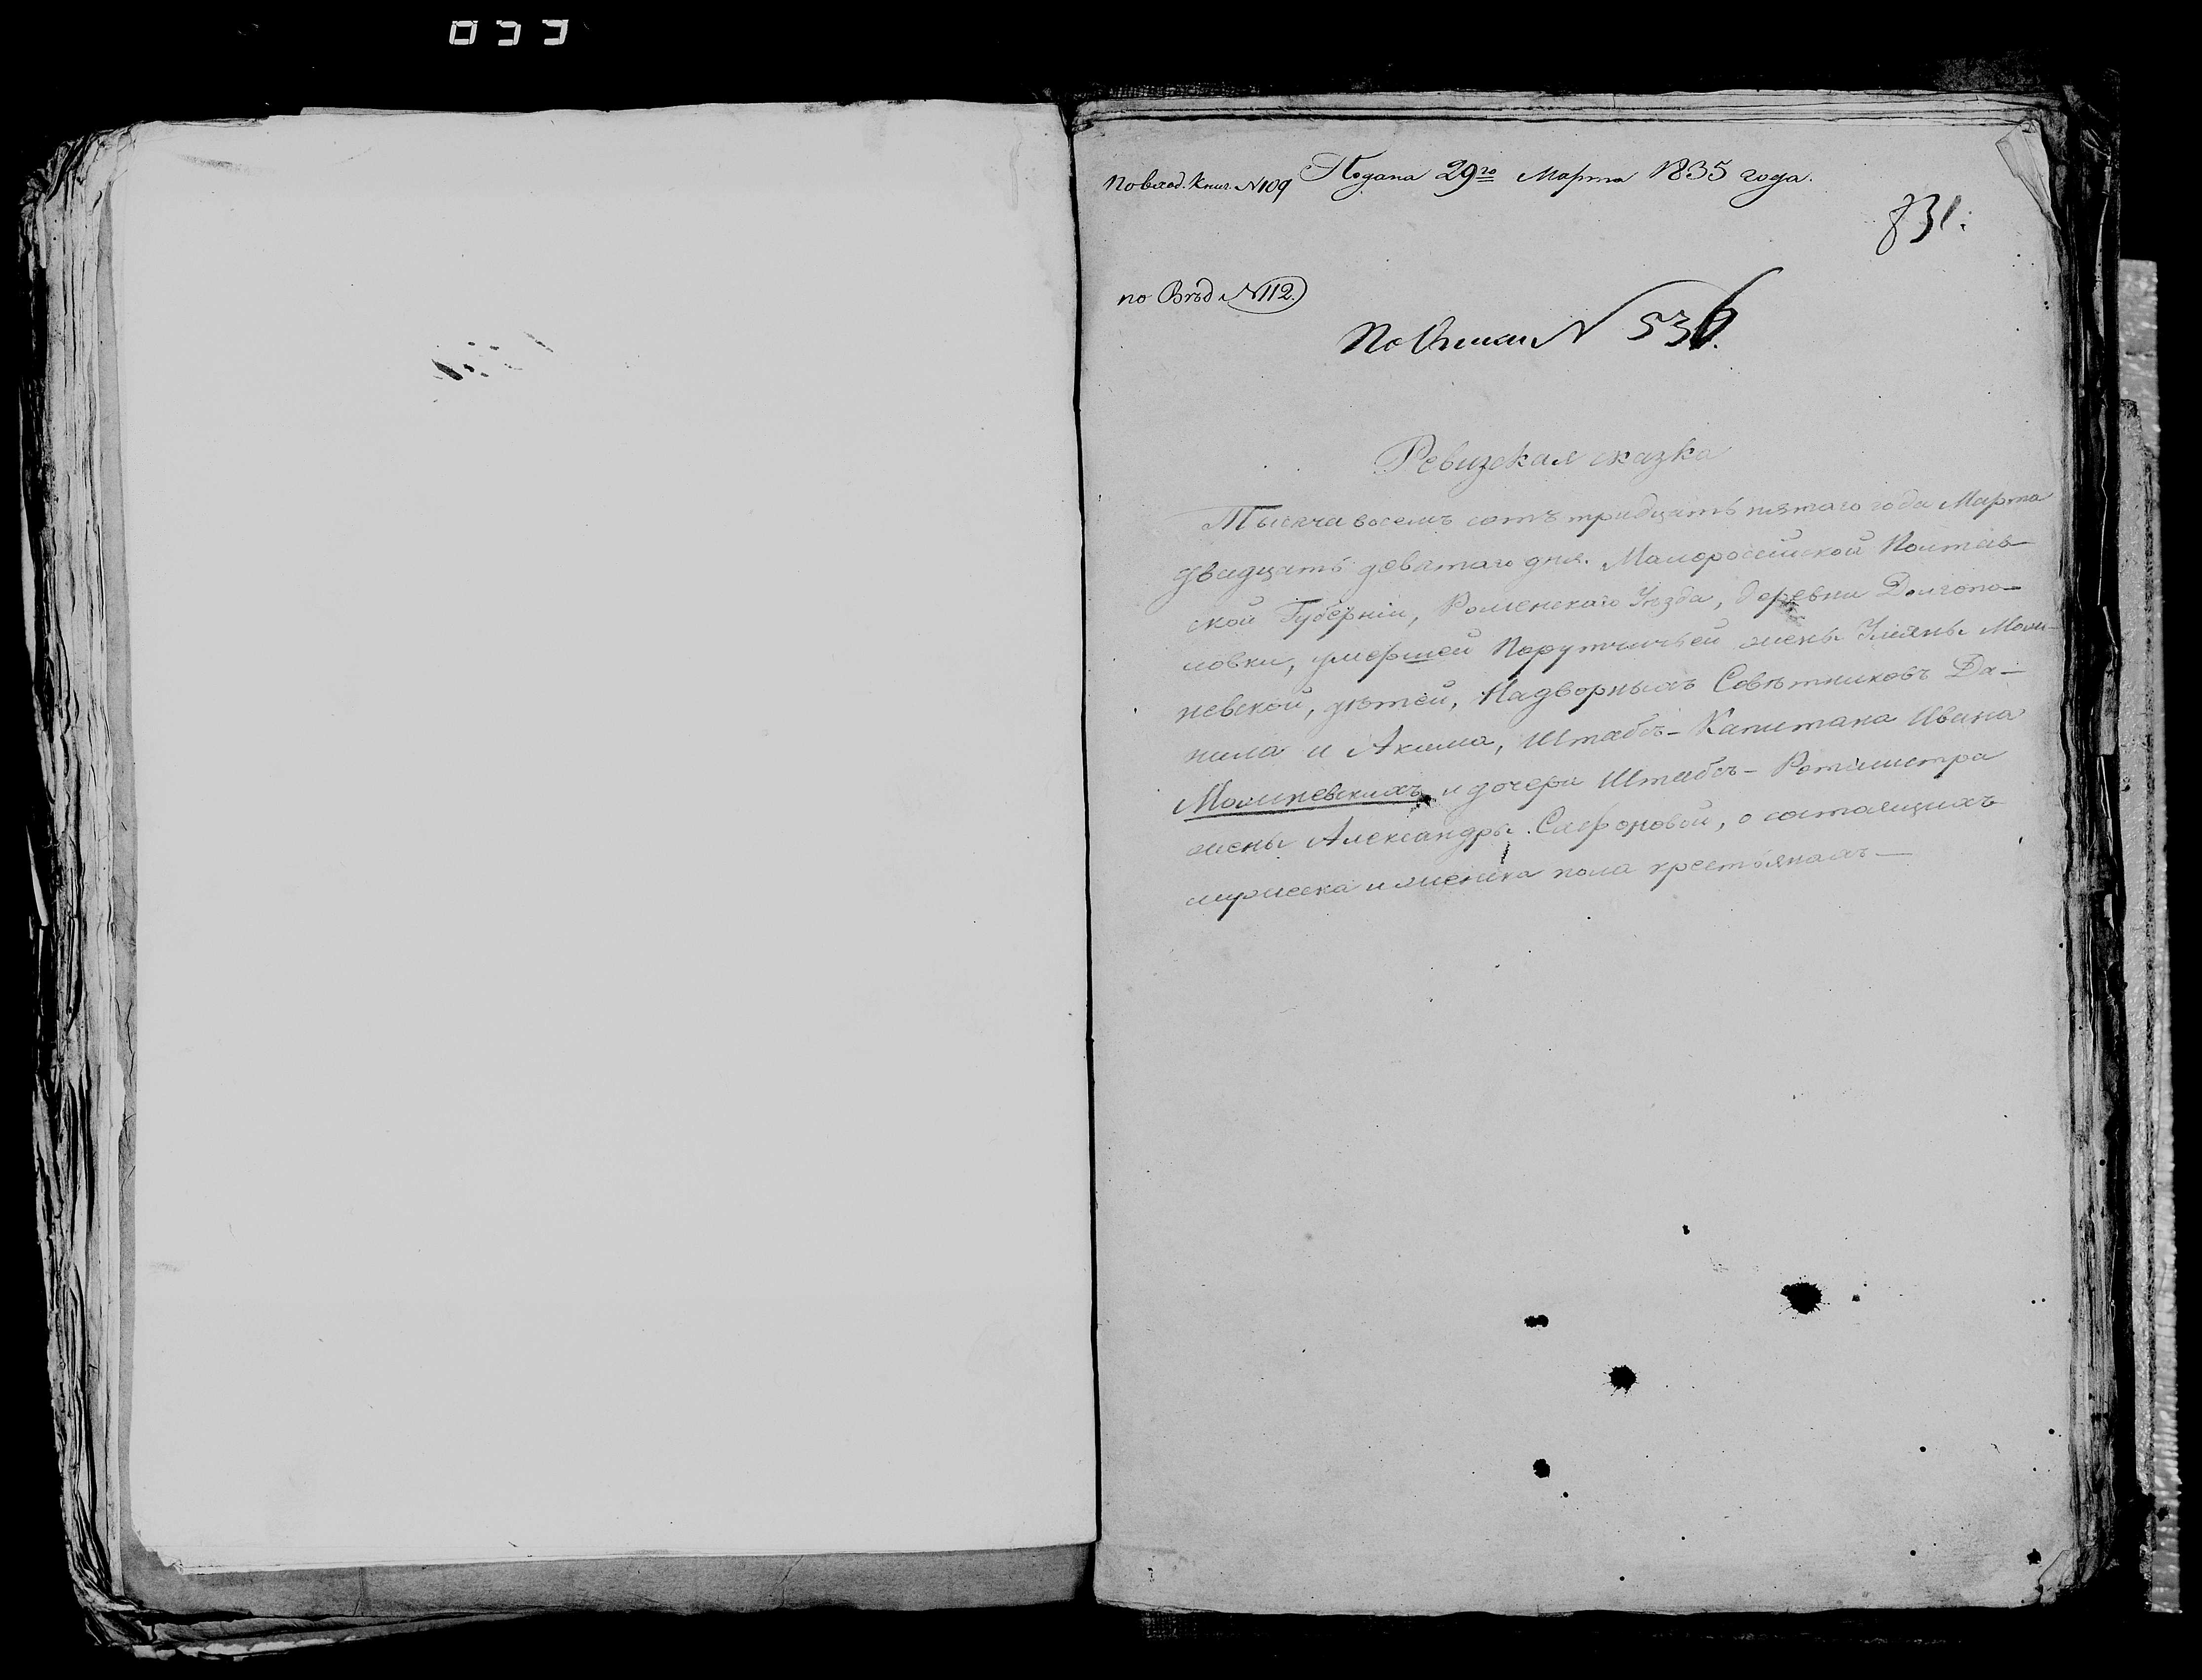 033
По вход. Книг. N109 Подана 29го Марта 1835 года.
831.
по Вѣд N112.
По Описи N 536.
Ревизская сказка
Тысяча восемъ сотъ тридцать пятаго года Марта
двадцать девятаго дня. Малороссійской Полтав-
ской Губерніи, Роменскаго Уѣзда, деревни Долгопо-
ловки, умершей Порутчичьей жены Ульяны
невской, дѣтей, Надворныхъ Совѣтниковъ Да-
нила и Акима, Штабсъ-Капитана Ивана
и дочери Штабсъ-Ротмистра
жены Александры Сафоновой, о состоящихъ
мужеска и женска пола крестьянахъ